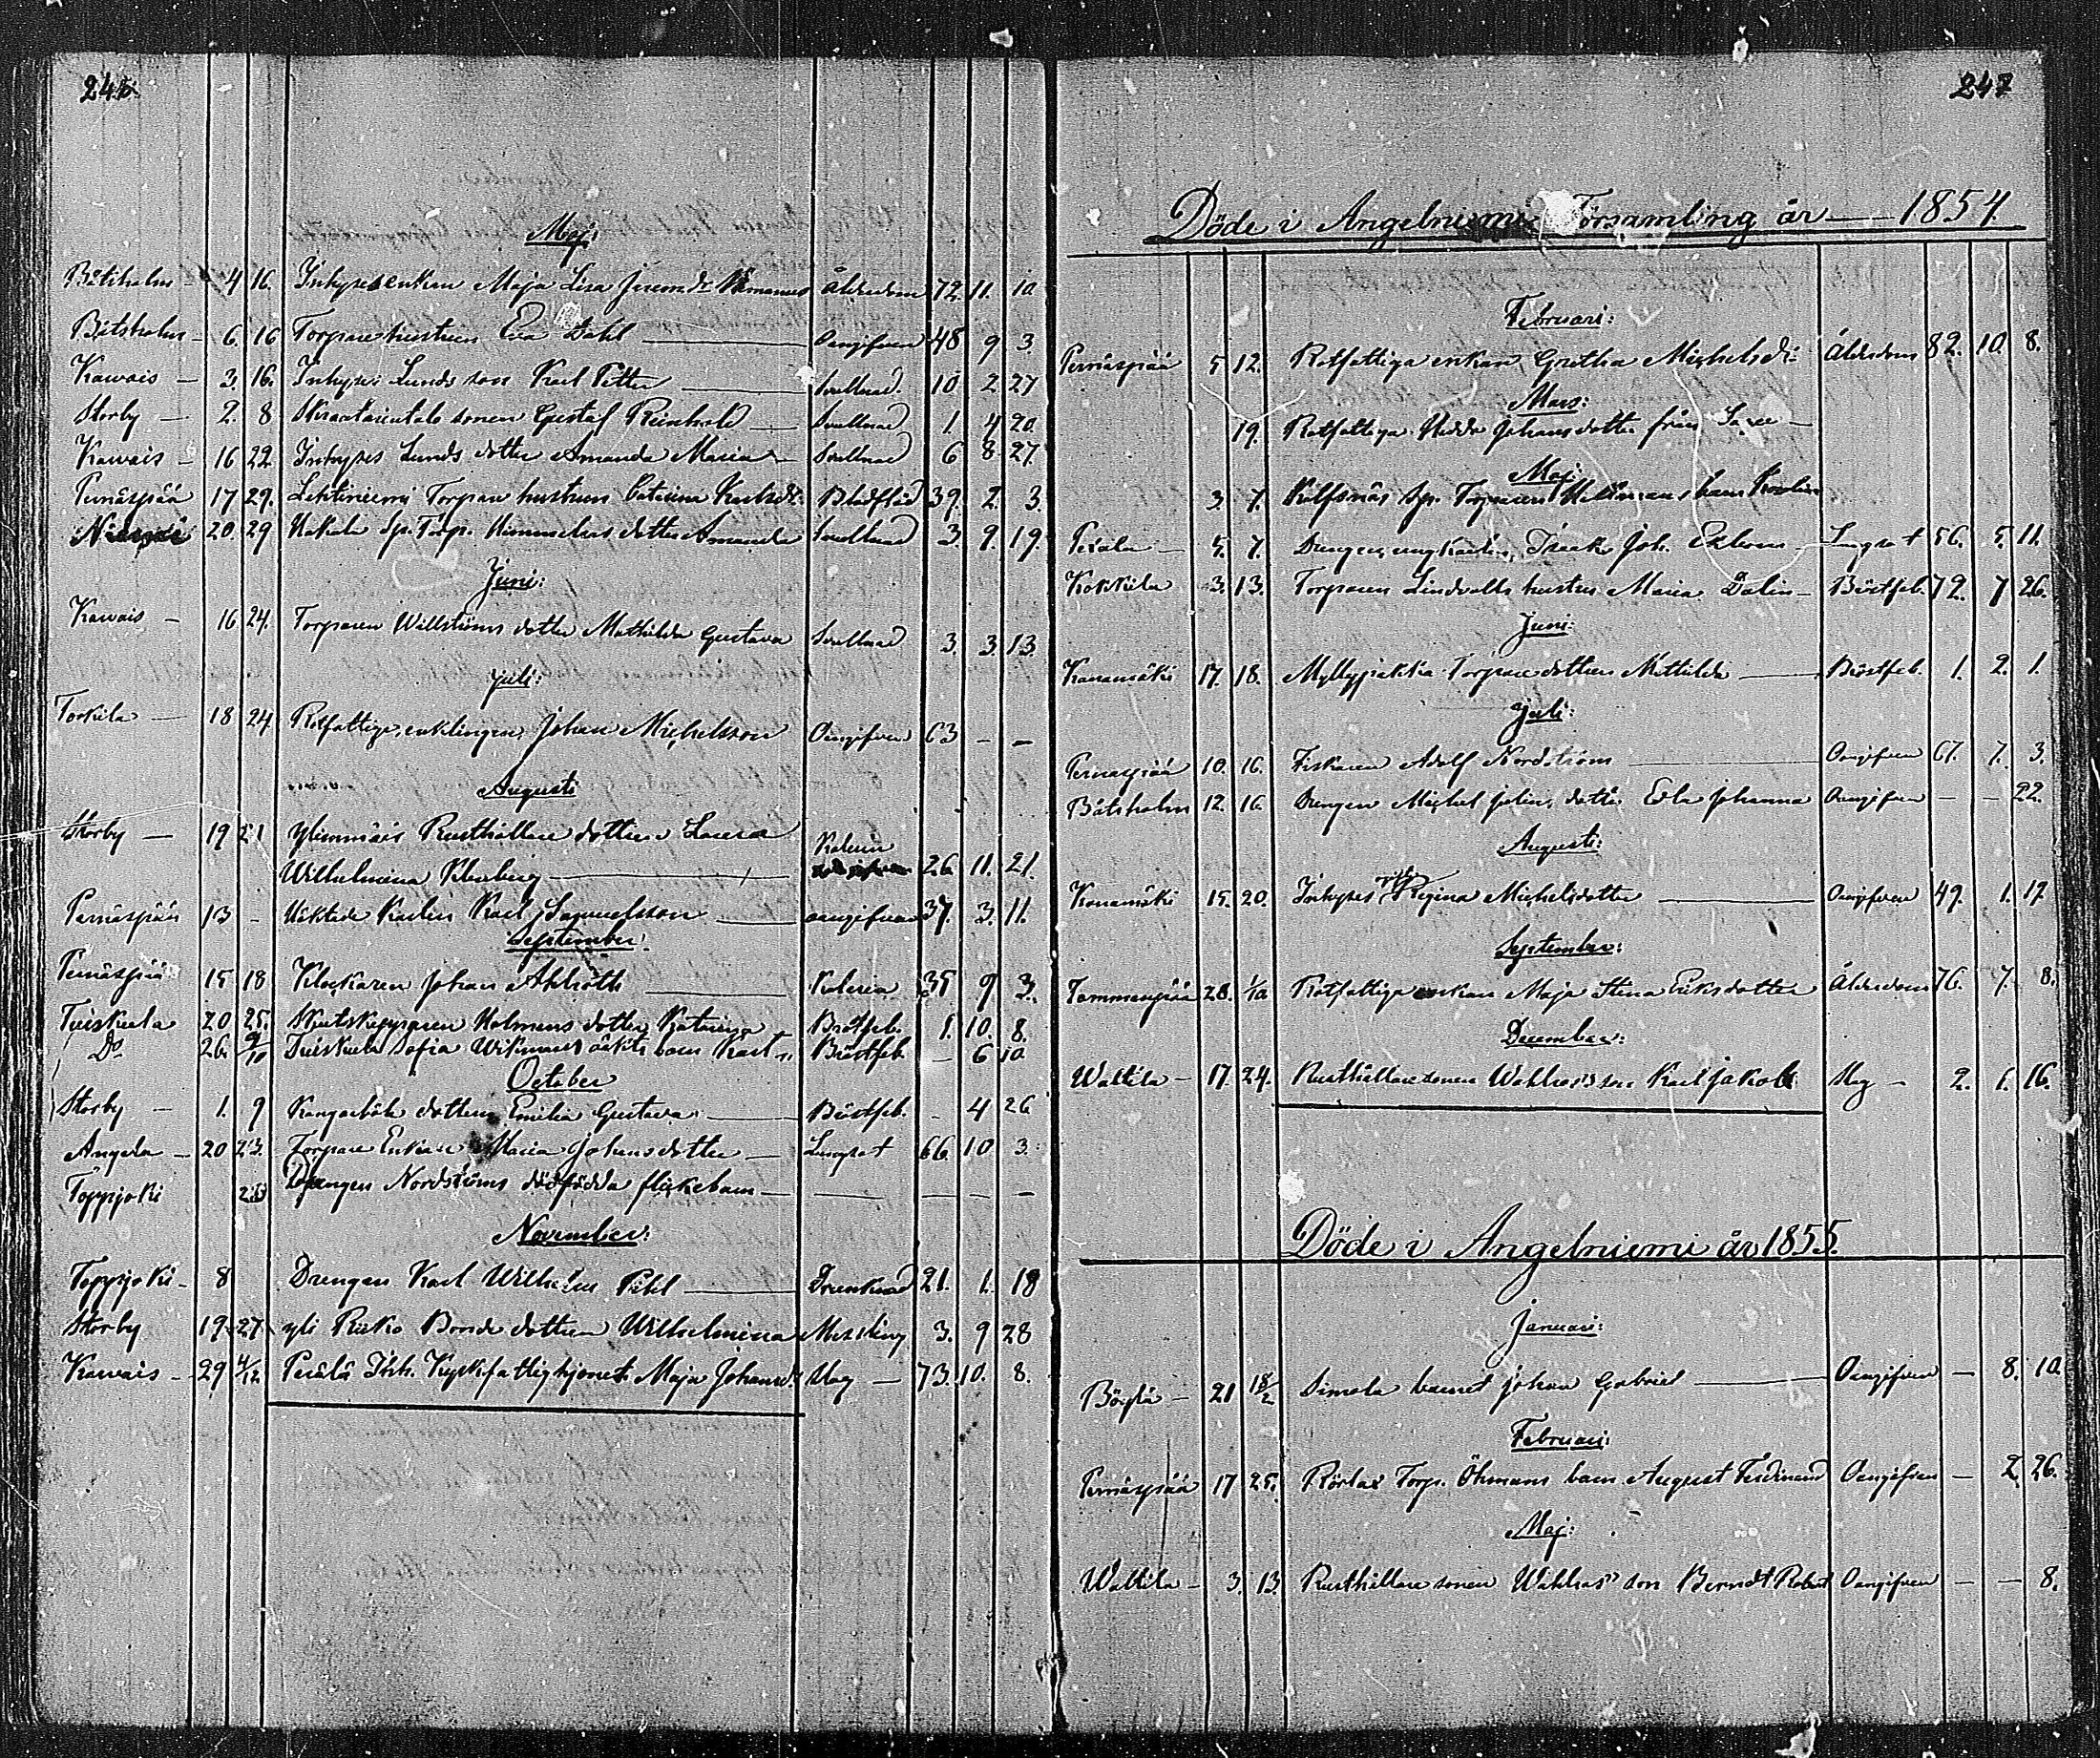 246.
Maj:
Båtsholm - 4 16. Inhyses enkan Maja Lisa Jerem.dr Ålderdom 72. 11. 10.
Båtsholm - 6. 16 Torpare hustrun Eva Dahl — Oangifven 48 9 3.
Kawais - 3. 16. Inhyses Lunds son Karl Petter — Svullnad 10 2 27
Storby - 2. 8 sonen Gustaf Reinhold — Svullnad 1. 4 20.
Kawais - 16 22. Inhyses Lunds dotter Amanda Maria - Svullnad 6 8 27.
Pernäspää 17 29. Lehtiniemi Torpare hustrun Catarina Karlsdr. Blodflöd 39. 2. 3.
20. 29 Hakala Sp. Torp. dotter Amanda Svullnad 3. 9. 19.
Juni:
Kawais - 16 24. Torparen Willströms dotter Mathilda Gustava Svullnad 3. 3. 13.
Juli:
Torkila — 18 24 Rotfattige enklingen Johan Michelsson Oangifven 63 - -
Augusti
Storby — 19 21 Ylimmäis Rusthållare dottren Laura
Wilhelmina — Kolera 26. 11. 21.
Pernäspää 13 - Karlen Karl Samuelsson — oangifven 37. 3. 11.
September.
Pernäspää 15 18 Klockaren Johan Ahlroth — Kolera 35 9 3.
Tuiskula 20 25. Holmens dotter Katarina Bröstfeb. 1. 10. 8.
Do 26. 9/10 Tuiskula Sofia Wikmans oäkta barn Bröstfeb. - 6 10
October
Storby - 1. 9 dottren Emilia Gustava — Bröstfeb. - 4 26
Angela - 20 23. Torpare Enkan Maria Johansdotter — Lungsot 66. 10 3.
Toppjoki 28 Drengen Nordströms dödfödda flickebarn — — — — —
November:
Toppjoki - 8 Drengen Karl Wilhelm Pihl — Drunknad 21. 1. 18
Storby 19 27 yli Bonde dottren Wilhelmina Messling 3. 9 28
Kawais - 29 4/12. Perälä Inh. Kyrkfattighjonet Maja Johansd. Slag — 73. 10. 8.
247
Döde i Angelniemi Församling år — 1854.
Februari:
Pernäspää 5 12. Rotfattiga enkan Gretha Michelsdr: Ålderdom 82. 10. 8.
Mars:
19. Rotfattiga Hedda Johansdotter från -
Maj:
3. 7. Rolfsnäs Sp. Torparen barn
Perälä — 5. 7. Drengen, ungkarlen, Isaak Joh. Ekbom - Lungsot 56. 5. 11.
Kokkila 3. 13. Torparen Lindvalls hustru Maria Dalin — Bröstfeb. 72. 7 26.
Juni:
Kanamäki 17. 18. Myllypakka Torpare dottren Mathilda — Bröstfeb. 1. 2. 1.
Juli:
Pernäspää 10. 16. Fiskaren Adolf Nordström — Oangifven 67. 7. 3.
Båtsholm 12. 16. Drengen Michel dotter Eva Johanna Oangifven - - 22.
Augusti:
Kanamäki 15. 20. Inhyses Regina Michelsdotter — Oangifven 49. 1. 17.
September:
Tammenpää 28. 1/10 Rotfattiga enkan Maja Stina Eriksdotter Ålderdom 76. 7. 8.
December:
Waltila - 17. 24. Rusthållare sonen Wahlros's son Karl Jakob Slag - 2. 1. 16.
Döde i Angelniemi år 1855.
Januari:
21 18/2 Simola barnet Johan Gabriel — Oangifven — 8. 10.
Februari:
Pernäspää 17 25. Rörlax Torp. Öhmans barn August Ferdinand Oangifven - 2. 26.
Maj:
Waltila - 3. 13 Rusthållare sonen Wahlros' son Berndt Robert Oangifven — — 8.